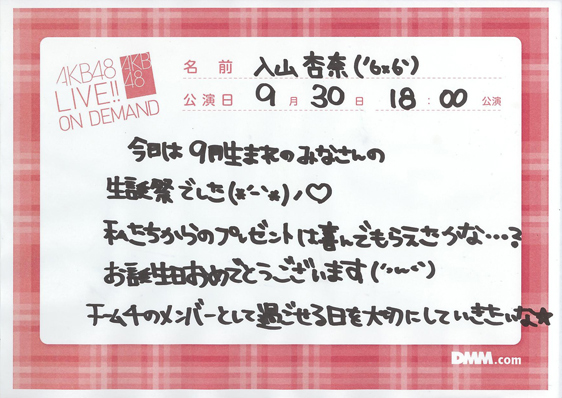 AKB48
LIVE!!
ON DEMAND
AKB
48
名前 入山杏奈('6x6')
公演日 9月30日 18:00公演
今日は9月生まれのみなさんの
生誕祭でした(*´-`*)ノ♡
私たちからのプレゼントは喜んでもらえたかな…?
お誕生日おめでとうございます('·~·')
チーム4のメンバーとして過ごせる日を大切にしていきたいな★
DMM.com